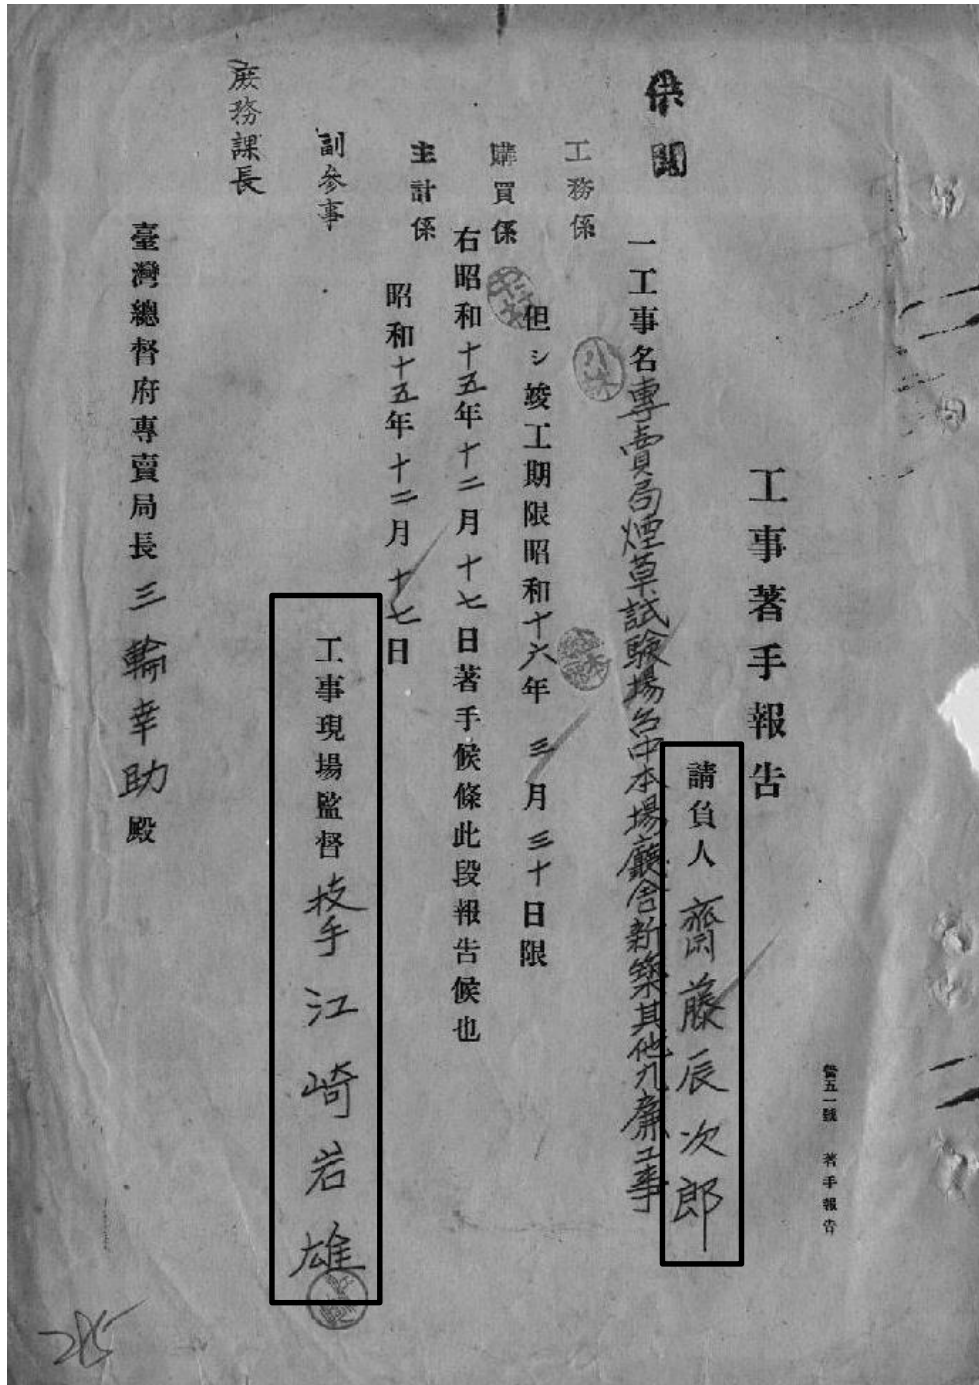 營五一號　著手報告
工事著手報告
請負人 齋藤辰次郎
供閱
一工事名專賣局煙草試驗場台中本場廳舍新築其他九廉工事
工務係
但シ竣工期限昭和十六年三月三十日限
購買係
右昭和十五年十二月十七日著手候條此段報告候也
主計係
昭和十五年十二月十七日
副參事
工事現場監督 技手 江崎岩雄
庶務課長
臺灣總督府專賣局長三輪幸助殿